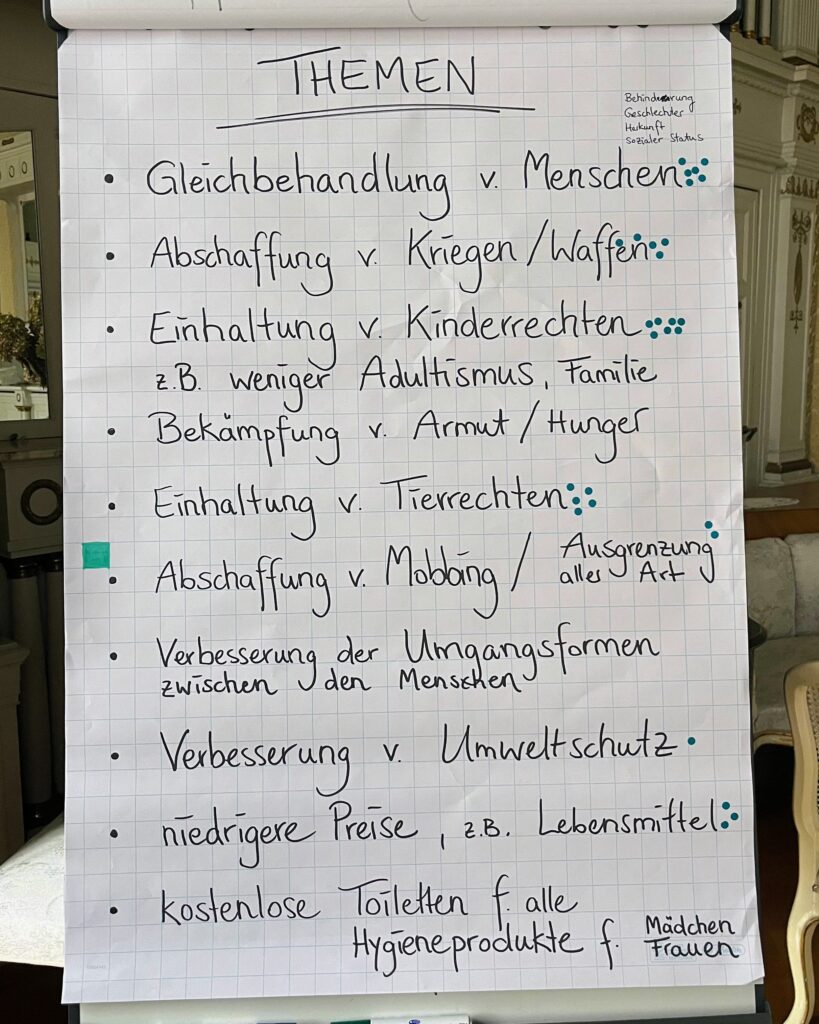 THEMEN
Behinderung
Geschlechter
Herkunft
Sozialer Status
• Gleichbehandlung v. Menschen
• Abschaffung v. Kriegen / Waffen
• Einhaltung v. Kinderrechten
z.B. weniger Adultismus, Familie
• Bekämpfung v. Armut / Hunger
• Einhaltung v. Tierrechten
• Abschaffung v. Mobbing / Ausgrenzung
alles Art
• Verbesserung der Umgangsformen
zwischen den Menschen
• Verbesserung v. Umweltschutz
• niedrigere Preise, z.B. Lebensmittel
• kostenlose Toiletten f. alle
Hygieneprodukte f. Mädchen
Frauen